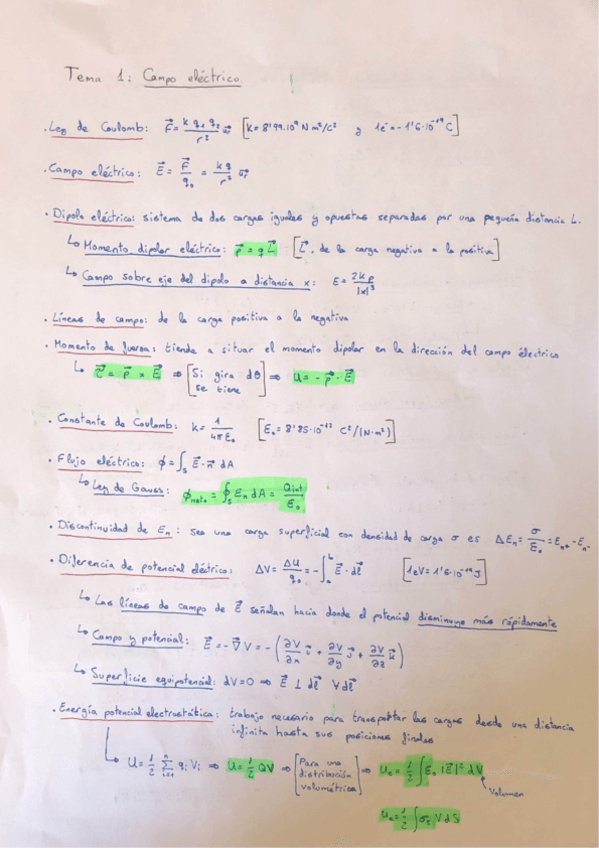 Tema 1: Campo eléctrico.
· Ley de Coulomb: F⃗ = k q₁ q₂ / r² u⃗r [k = 8'99·10⁹ N m²/C² y 1e⁻ = -1'6·10⁻¹⁹ C]
· Campo eléctrico: E⃗ = F⃗/q₀ = k q / r² u⃗r
· Dipolo eléctrico: sistema de dos cargas iguales y opuestas separadas por una pequeña distancia L.
↳ Momento dipolar eléctrico: p⃗ = q L⃗ [L⃗, de la carga negativa a la positiva]
↳ Campo sobre eje del dipolo a distancia x: E = 2kp / |x|³
· Líneas de campo: de la carga positiva a la negativa
· Momento de fuerza: tiende a situar el momento dipolar en la dirección del campo eléctrico
↳ τ⃗ = p⃗ × E⃗ ⇒ [Si gira dθ se tiene] ⇒ U = - p⃗ · E⃗
· Constante de Coulomb: k = 1 / 4πε₀ [ε₀ = 8'85·10⁻¹² C²/(N·m²)]
· Flujo eléctrico: ϕ = ∫s E⃗ · n⃗ dA
↳ Ley de Gauss: ϕneto = ∮s En dA = Qint / ε₀
· Discontinuidad de En: sea una carga superficial con densidad de carga σ es ΔEn = σ/ε₀ = En+ - En-
· Diferencia de potencial eléctrico: ΔV = ΔU/q₀ = -∫ₐᵇ E⃗ · dl⃗ [1eV = 1'6·10⁻¹⁹ J]
↳ Las líneas de campo de E⃗ señalan hacia donde el potencial disminuye más rápidamente
↳ Campo y potencial: E⃗ = -∇⃗V = -(∂V/∂x i⃗ + ∂V/∂y j⃗ + ∂V/∂z k⃗)
↳ Superficie equipotencial: dV = 0 ⇒ E⃗ ⊥ dl⃗ ∀dl⃗
· Energía potencial electrostática: trabajo necesario para transportar las cargas desde una distancia
infinita hasta sus posiciones finales
↳ U = 1/2 Σⁿᵢ₌₁ qᵢ Vᵢ ⇒ U = 1/2 QV ⇒ [Para una distribución volumétrica] ⇒ Ue = 1/2 ∫ ε₀ |E⃗|² dV
Volumen
Ue = 1/2 ∫ σs V dS